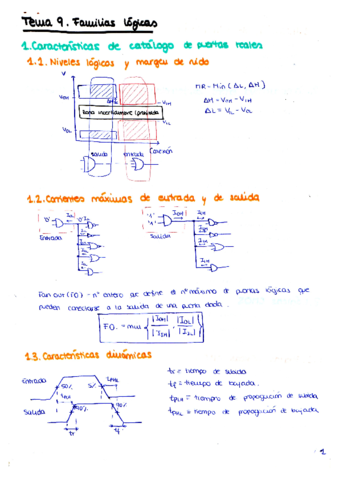 Tema 9. Familias lógicas
1. Características de catálogo de puertas reales
1.1. Niveles lógicos y margen de ruido
V
MR = Min (ΔL, ΔH)
VOH
ΔH
VIH
ΔH = VOH - VIH
Zona incertidumbre / prohibida
ΔL = VIL - VOL
VIL
VOL
salida
entrada
Conexión
1.2. Corrientes máximas de entrada y de salida
"0"
"0"
"1"
IOH
IIH
Entrada
Salida
IIL
IIH
Fan out (FO) = nº entero que define el nº máximo de puertas lógicas que
pueden conectarse a la salida de una puerta dada.
FO = min { |IOH| / |IIH| , |IOL| / |IIL| }
1.3. Características dinámicas
Entrada
50%
tPHL
tr = tiempo de subida
tf = tiempo de bajada.
tPLH = tiempo de propagación de subida
Salida
90%
90%
tPHL = tiempo de propagación de bajada
tr
tf
1